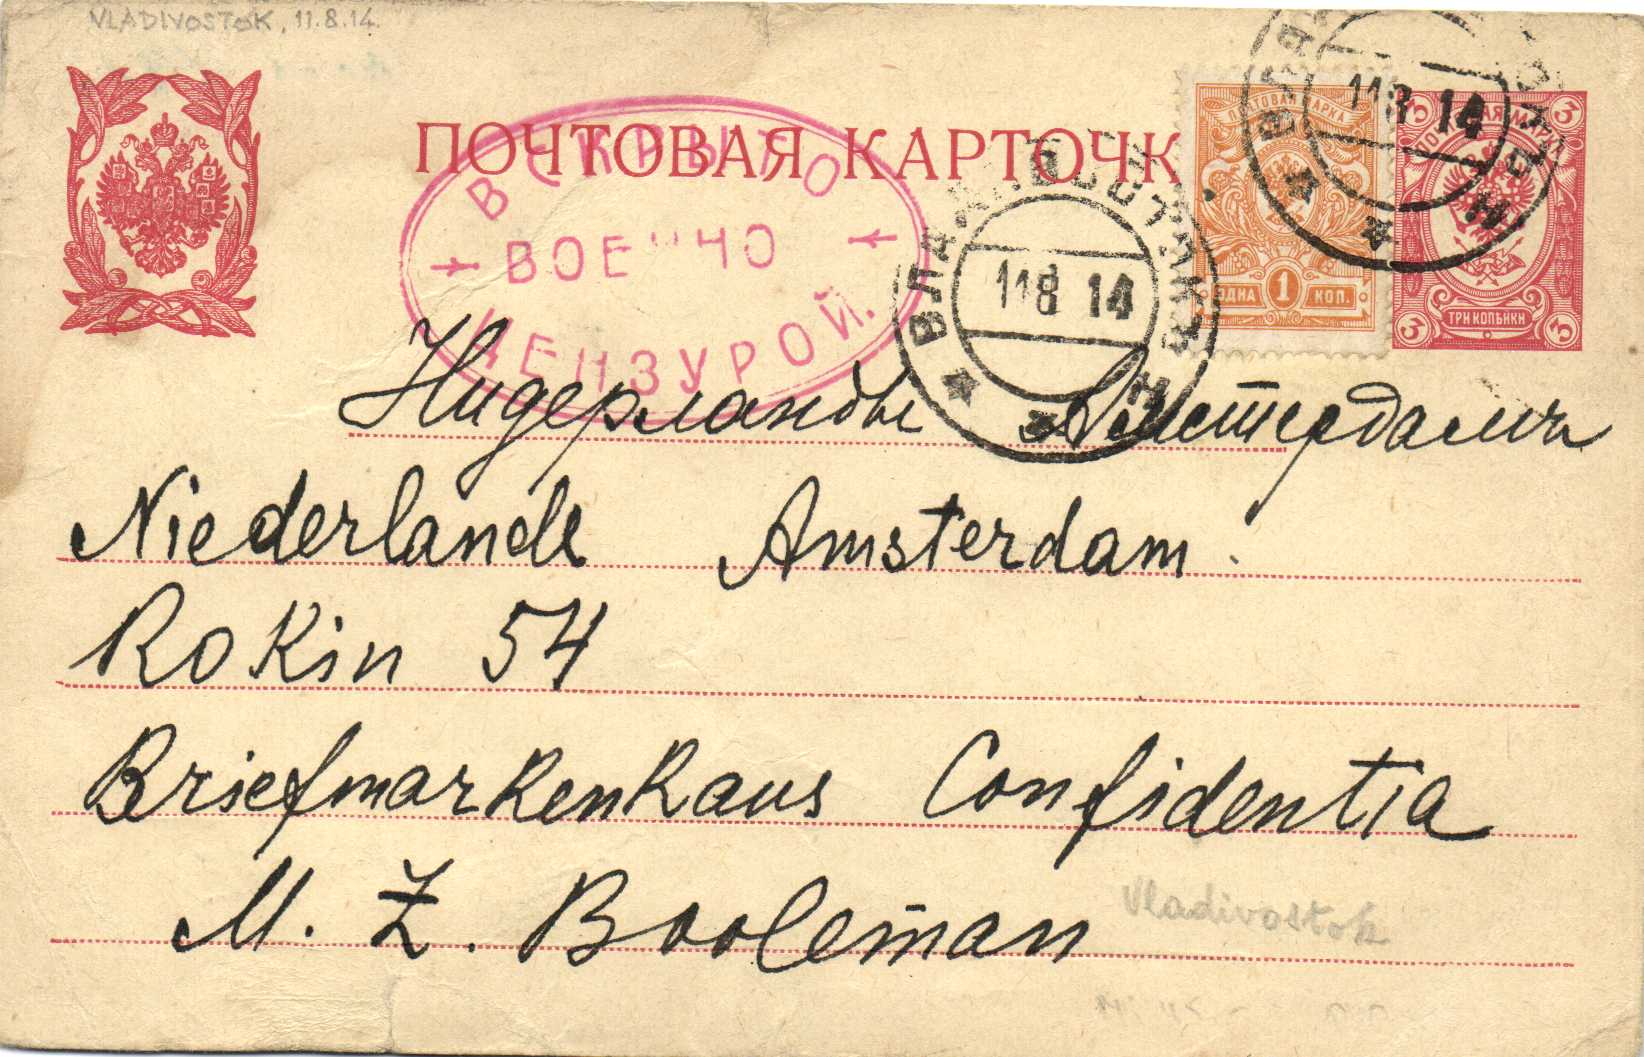 VLADIVOSTOK, 11.8.14.
ПОЧТОВАЯ КАРТОЧК
ВСКРЫТО
ВОЕННО
ЦЕНЗУРОЙ.
11 8 14
11 8 14
ПОЧТОВАЯ МАРКА
ОДНА 1 КОП.
3 3
ТРИ КОПѢЙКИ
3 3
Нидерланды Амстердамъ
Niederlande Amsterdam.
Rokin 54
Briefmarkenhaus Confidentia
M. Z. Booleman
Vladivostok